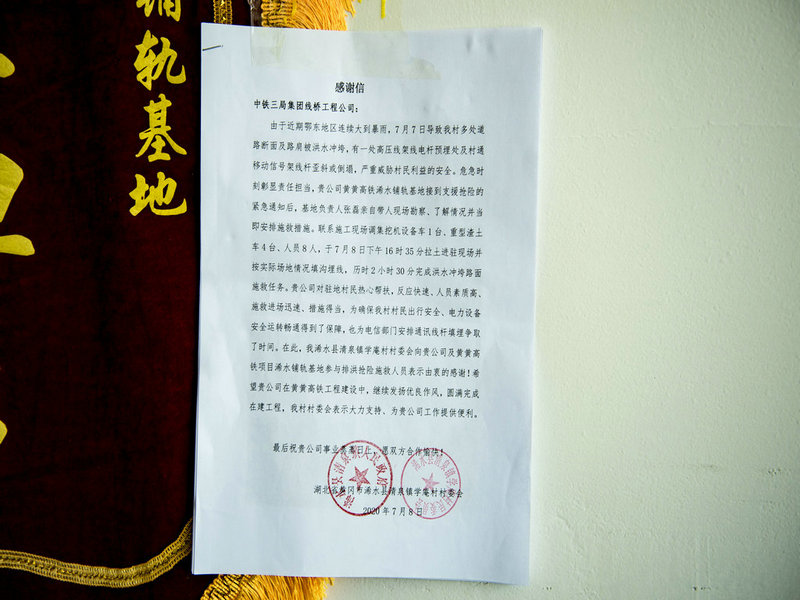 铺轨基地
感谢信
中铁三局集团线桥工程公司：
由于近期鄂东地区连续大到暴雨，7月7日导致我村多处道
路断面及路肩被洪水冲垮，有一处高压线架线电杆预埋处及村通
移动信号架线杆歪斜或倒塌，严重威胁村民利益的安全。危急时
刻彰显责任担当，贵公司黄黄高铁浠水铺轨基地接到支援抢险的
紧急通知后，基地负责人张磊亲自带人现场勘察、了解情况并当
即安排施救措施。联系施工现场调集挖机设备车1台、重型渣土
车4台、人员8人，于7月8日下午16时35分拉土进驻现场并
按实际场地情况填沟埋线，历时2小时30分完成洪水冲垮路面
施救任务。贵公司对驻地村民热心帮扶，反应快速、人员素质高、
施救进场迅速、措施得当，为确保我村村民出行安全、电力设备
安全运转畅通得到了保障，也为电信部门安排通讯线杆填埋争取
了时间。在此，我浠水县清泉镇学庵村村委会向贵公司及黄黄高
铁项目浠水铺轨基地参与排洪抢险施救人员表示由衷的感谢！希
望贵公司在黄黄高铁工程建设中，继续发扬优良作风，圆满完成
在建工程，我村村委会表示大力支持、为贵公司工作提供便利。
最后祝贵公司事业蒸蒸日上，愿双方合作愉快！
湖北省黄冈市浠水县清泉镇学庵村村委会
2020年7月8日
浠水县清泉镇人民政府
浠水县清泉镇学庵村村民委员会